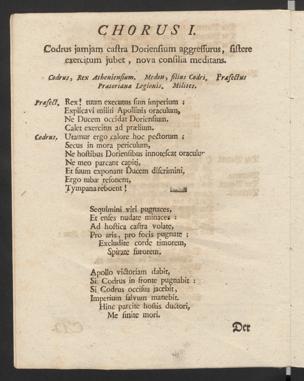 CHORUS I.
Codrus jamjam castra Doriensium aggressurus, sistere
exercitum jubet, nova consilia meditans.
Codrus, Rex Atheniensium. Medon, filius Codri, Præfectus
Prætorianæ Legionis. Milites.
Præfect. Rex! tuum executus sum imperium;
Explicavi militi Apollinis oraculum,
Ne Ducem occidat Doriensium.
Calet exercitus ad prælium.
Codrus. Utamur ergo calore hoc pectorum;
Secus in mora periculum,
Ne hostibus Doriensibus innotescat oraculum
Ne meo parcant capiti,
Et suum exponant Ducem discrimini,
Ergo tubæ resonent,
Tympana reboent!
Sequimini viri pugnaces,
Et enses nudate minaces:
Ad hostica castra volate,
Pro aris, pro focis pugnate:
Excludite corde timorem,
Spirate furorem.
Apollo victoriam dabit,
Si Codrus in fronte pugnabit:
Si Codrus occisus jacebit,
Imperium salvum manebit.
Hinc parcite hostis ductori,
Me sinite mori.
Der